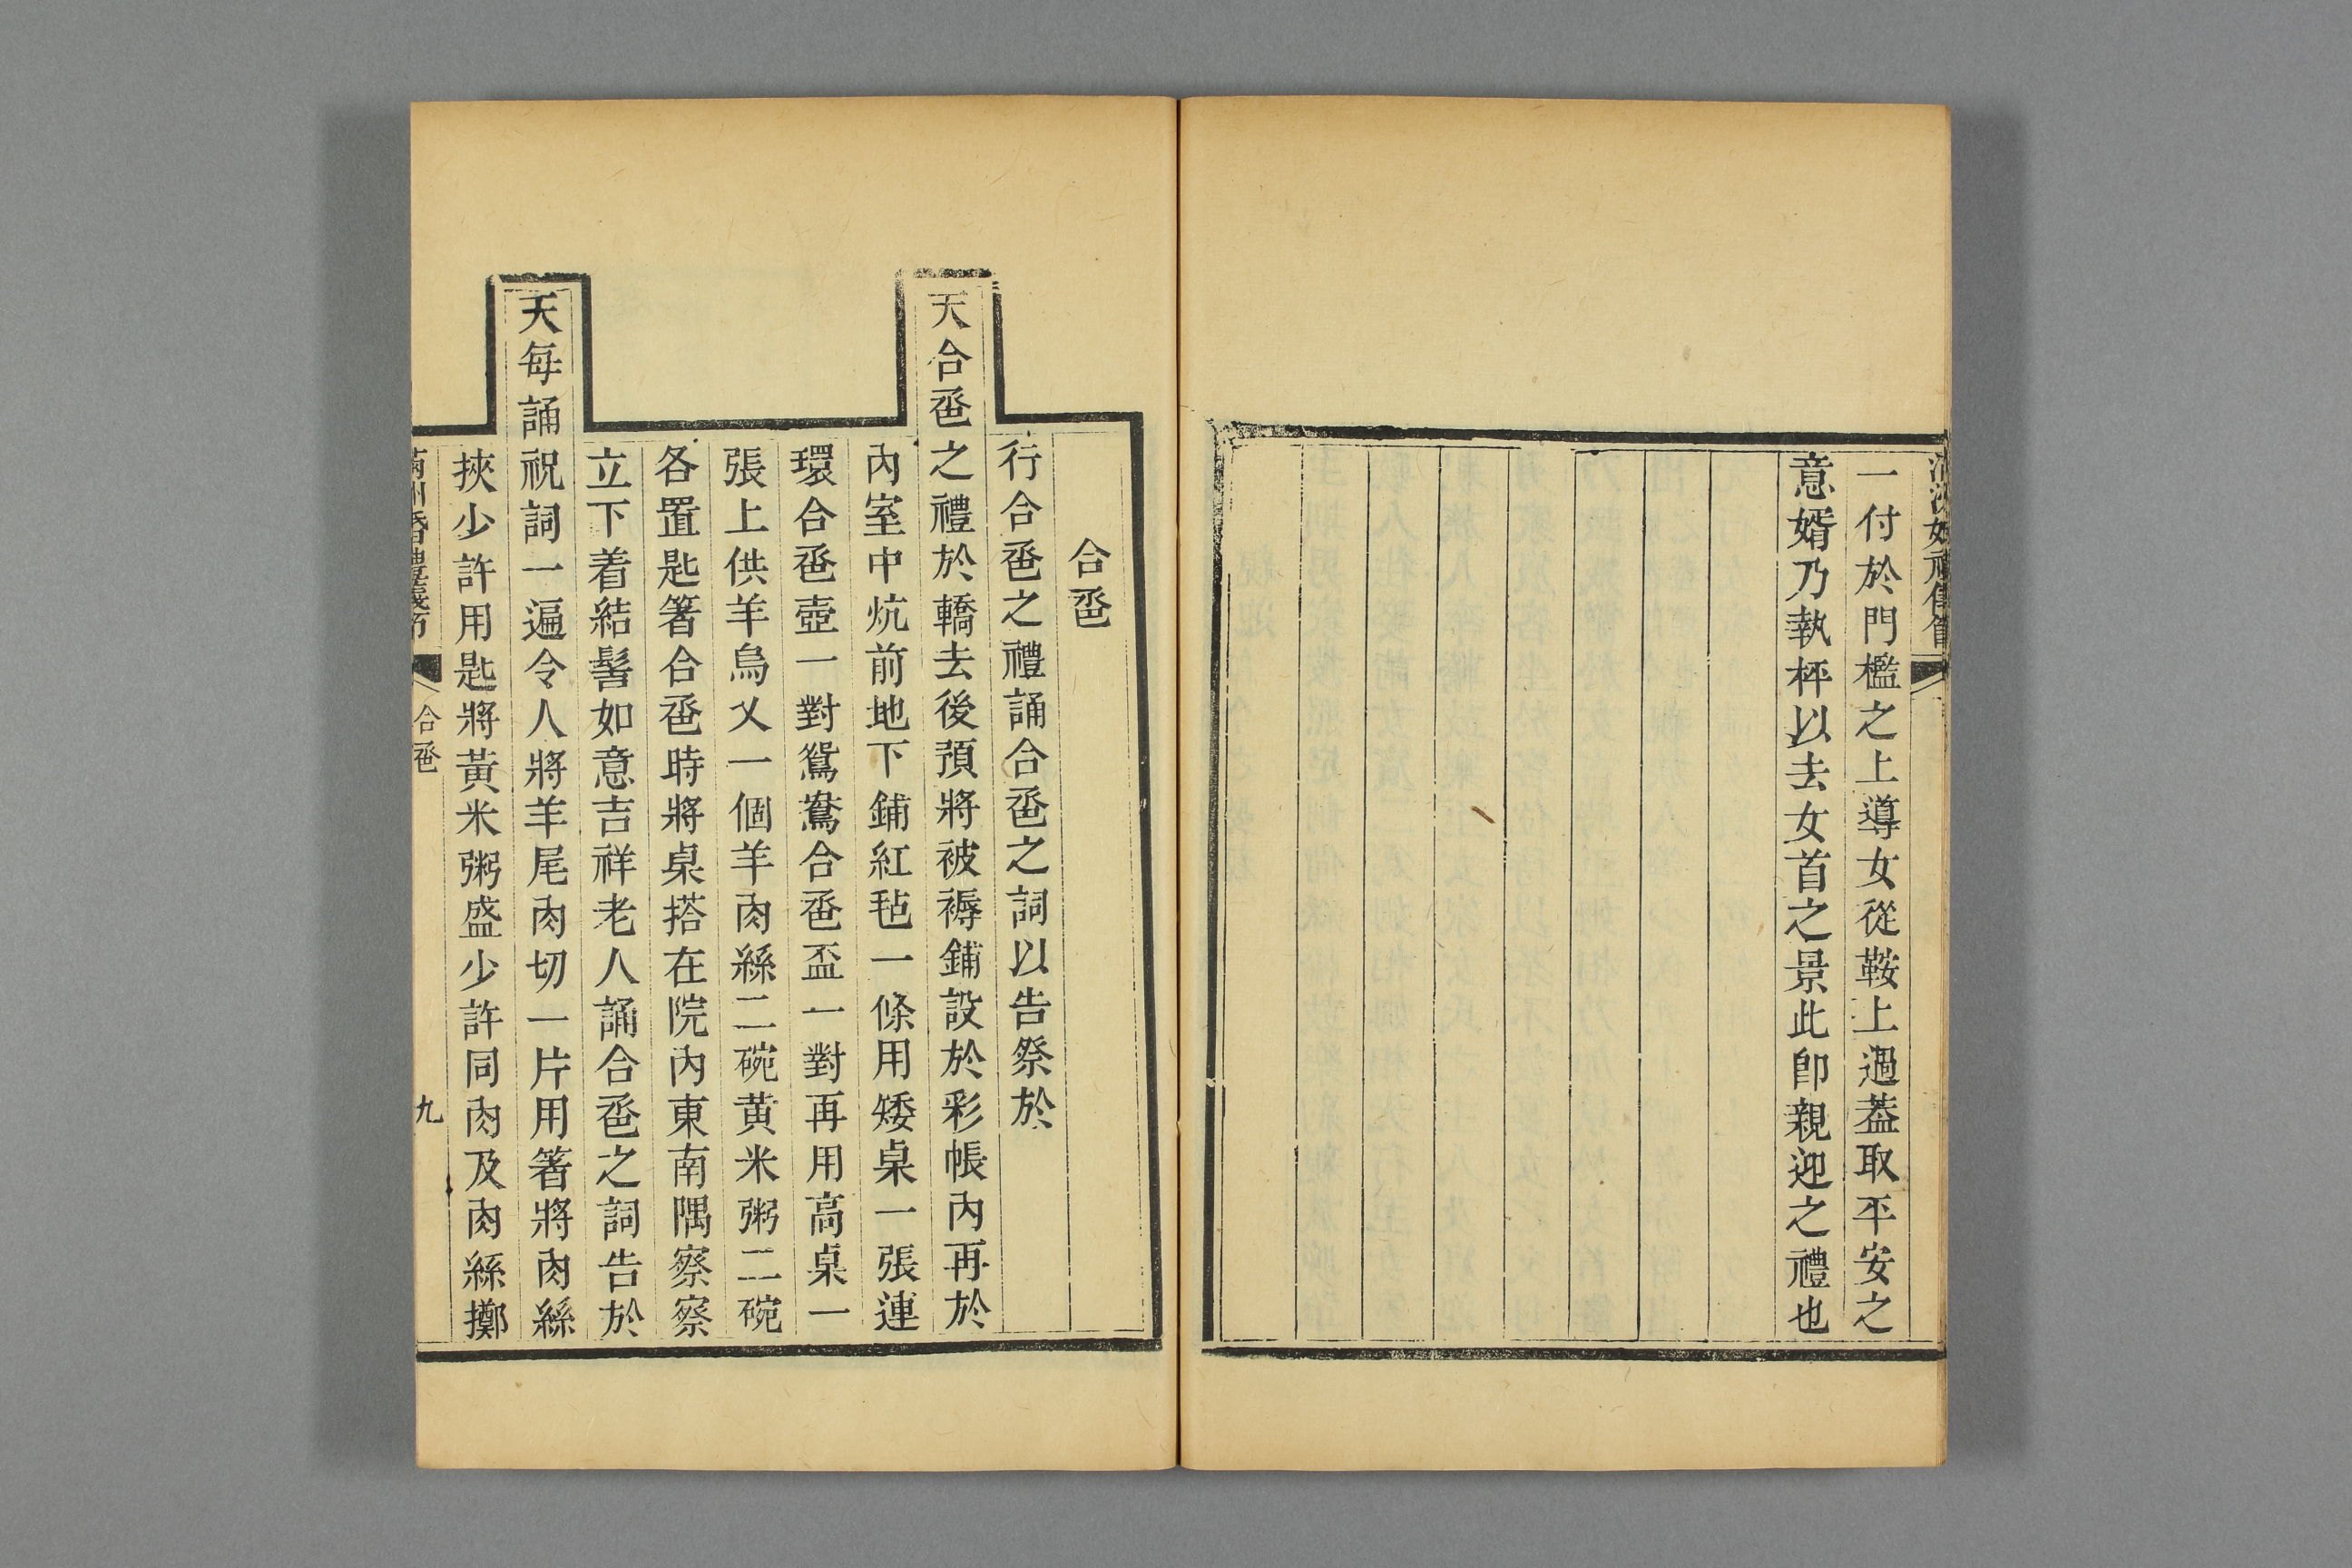 一付於門檻之上導女從鞍上過葢取平安之
意婿乃執枰以去女首之景此卽親迎之禮也
合巹
行合巹之禮誦合巹之詞以告祭於
天合巹之禮於轎去後預將被褥鋪設於彩帳內再於
內室中炕前地下鋪紅毡一條用矮桌一張連
環合巹壺一對鴛鴦合巹盃一對再用高桌一
張上供羊烏乂一個羊肉絲二碗黃米粥二碗
各置匙箸合巹時將桌搭在院內東南隅察察
立下着結髻如意吉祥老人誦合巹之詞告於
天每誦祝詞一遍令人將羊尾肉切一片用箸將肉絲
挾少許用匙將黃米粥盛少許同肉及肉絲擲
滿洲婚禮儀節 合巹 九